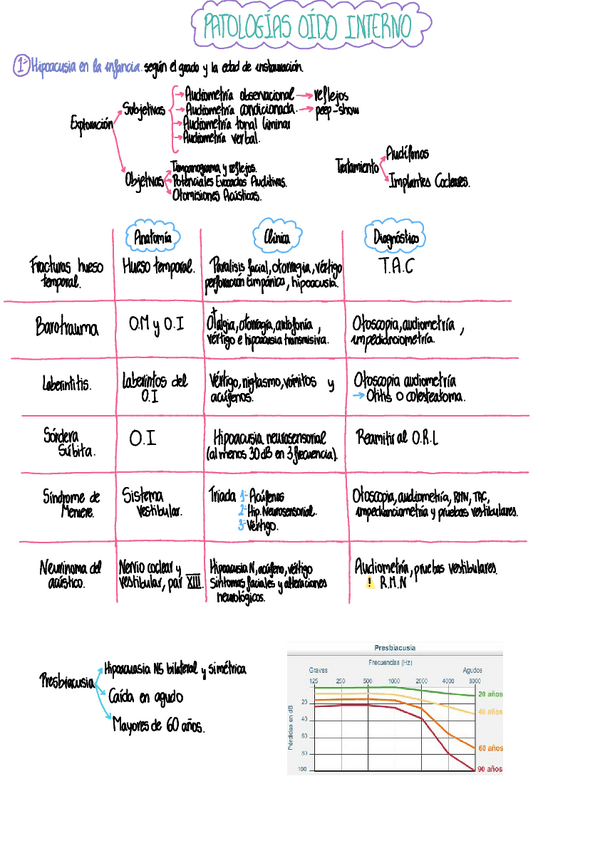 PATOLOGÍAS OÍDO INTERNO
1º Hipoacusia en la infancia: según el grado y la edad de instauración.
Exploración
Subjetivas
Audiometría observacional → reflejos
Audiometría condicionada. → peep-show
Audiometría tonal liminar
Audiometría verbal.
Objetivas
Timpanograma y reflejos.
Potenciales Evocados Auditivos.
Otomisiones Acústicas.
Tratamiento
Audífonos
Implantes Cocleares.
Anatomía
Clínica
Diagnóstico
Fracturas hueso
temporal.
Hueso temporal.
Paralisis facial, otorragia, vértigo
perforación timpánica, hipoacusia.
T.A.C
Barotrauma
O.M y O.I
Otalgia, otorragia, autofonía,
vértigo e hipoacusia transmisiva.
Otoscopia, audiometría,
impedidnciometría.
Laberintitis.
Laberintos del
O.I
Vértigo, nigtasmo, vómitos y
acúfenos.
Otoscopia audiometría
→ Otitis o colesteatoma.
Sórdera
Súbita.
O.I
Hipoacusia neurosensorial
(al menos 30 dB en 3 frecuencia).
Reamitir al O.R.L
Síndrome de
Meniere.
Sistema
vestibular.
Triada
1º Acúfenos
2º Hip. Neurosensorial.
3º Vértigo.
Otoscopia, audiometría, RMN, TAC,
impedianciometría y pruebas vestibulares.
Neurinoma del
acústico.
Nervio coclear y
vestibular, par XIII.
Hipoacusia N, acúfeno, vértigo
Síntomas faciales y alteraciones
neurológicos.
Audiometría, pruebas vestibulares.
! R.M.N
Presbiacusia
Hipoacuasia NS bilateral y simétrica
Caída en agudo
Mayores de 60 años.
Presbiacusia
Frecuencias (Hz)
Graves
Agudos
125 250 500 1000 2000 4000 8000
Pérdidas en dB
20
40
60
80
100
20 años
40 años
60 años
90 años